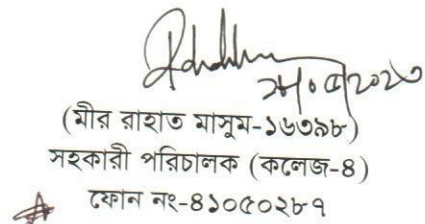 ২৮/০৫/২০২৩
(মীর রাহাত মাসুম-১৬৩৯৮)
সহকারী পরিচালক (কলেজ-৪)
ফোন নং-৪১০৫০২৮৭